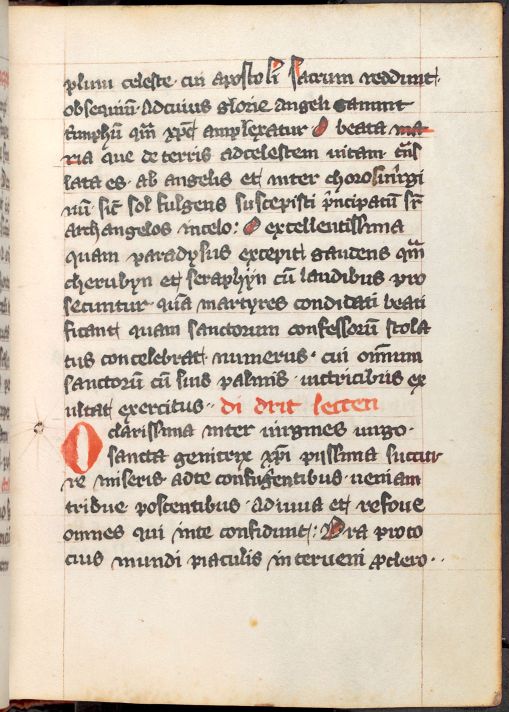 plum celeste· cui apostoli sacrum reddunt·
obsequiū· Ad cuius glorie angeli canunt
tͥumphū qm̄ xp̄c amplexatur O beata ma
ria que de terris ad celestem uitam tn̄s
lata es· ab angelis et inter choros uirgi
nū sic̄ sol fulgens suscepisti pͥncipatū sr̄
archangelos in celo: O excellentissima
quam paradysus excepit gaudens qm̄
cherubyn et seraphÿn cū laudibus pro
secuntur· quā martyres condidati beati
ficant quam sanctorum confessorū stola
tus concelebrat numerus· cui omnium
sanctorū cū suis palmis· uictricibus ex
ultat exercitus·· di drit lecten
O clarissima inter uirgines uirgo·
sancta genitrix xp̄i piissima succur
re miseris· ad te confugentibus· ueniam
tribue poscentibus· adiuua et refoue
omnes qui in te confidunt: Ora pro to
cius mundi piaculis interueni ꝓ clero··